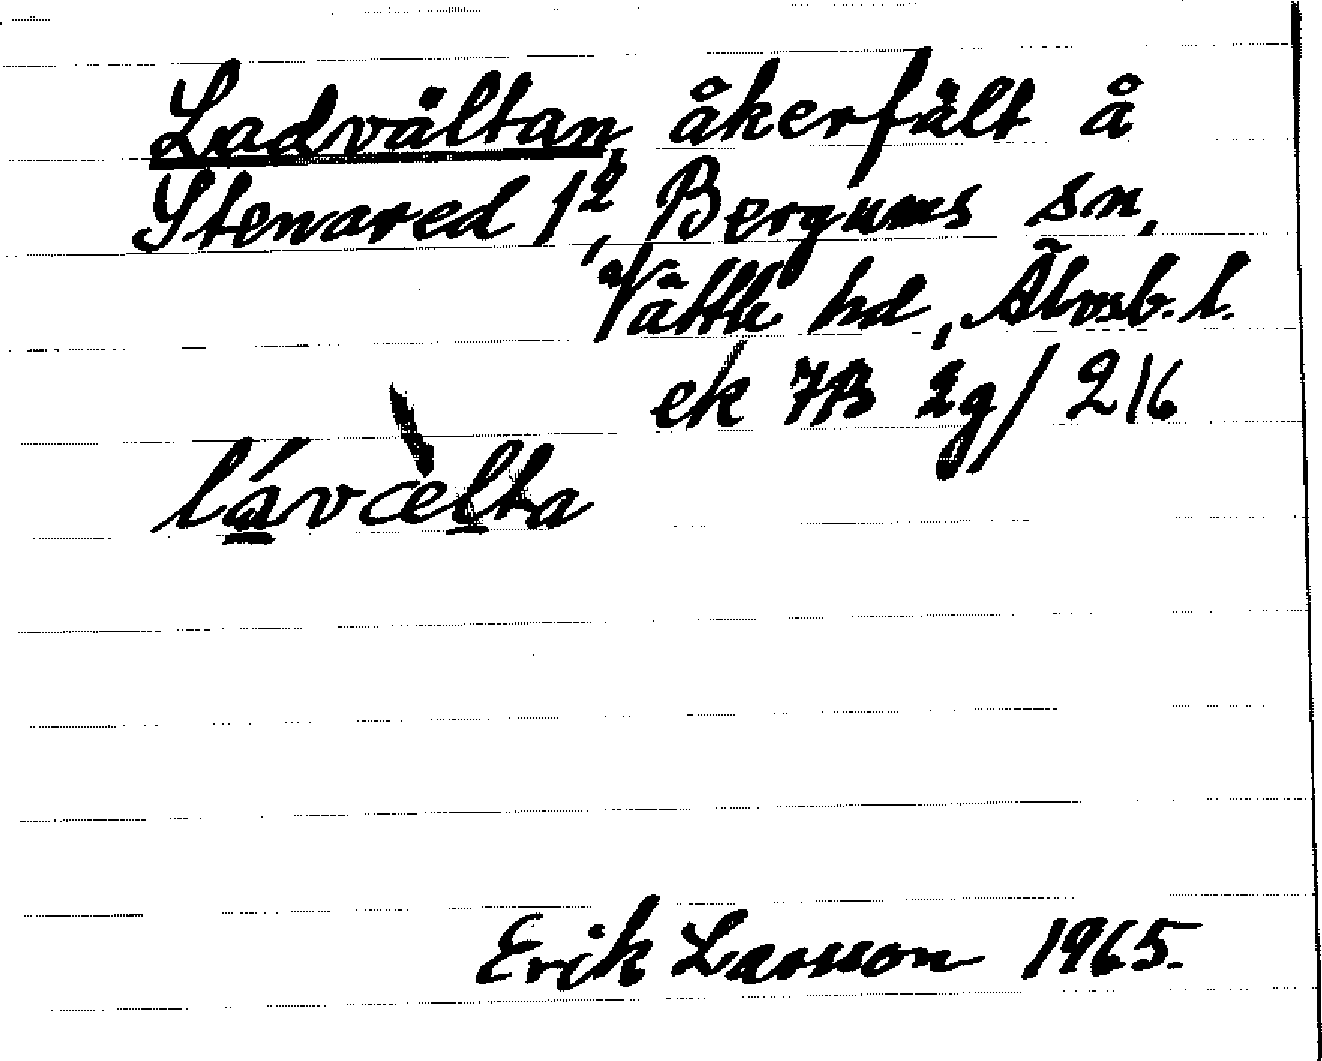 Ladvältan, åkerfält å
Stenared 1², Bergums sn,
Vättle hd, Älvsb. l.
ek 7B 2g/216
lávæ̀lta
Erik Larsson 1965.